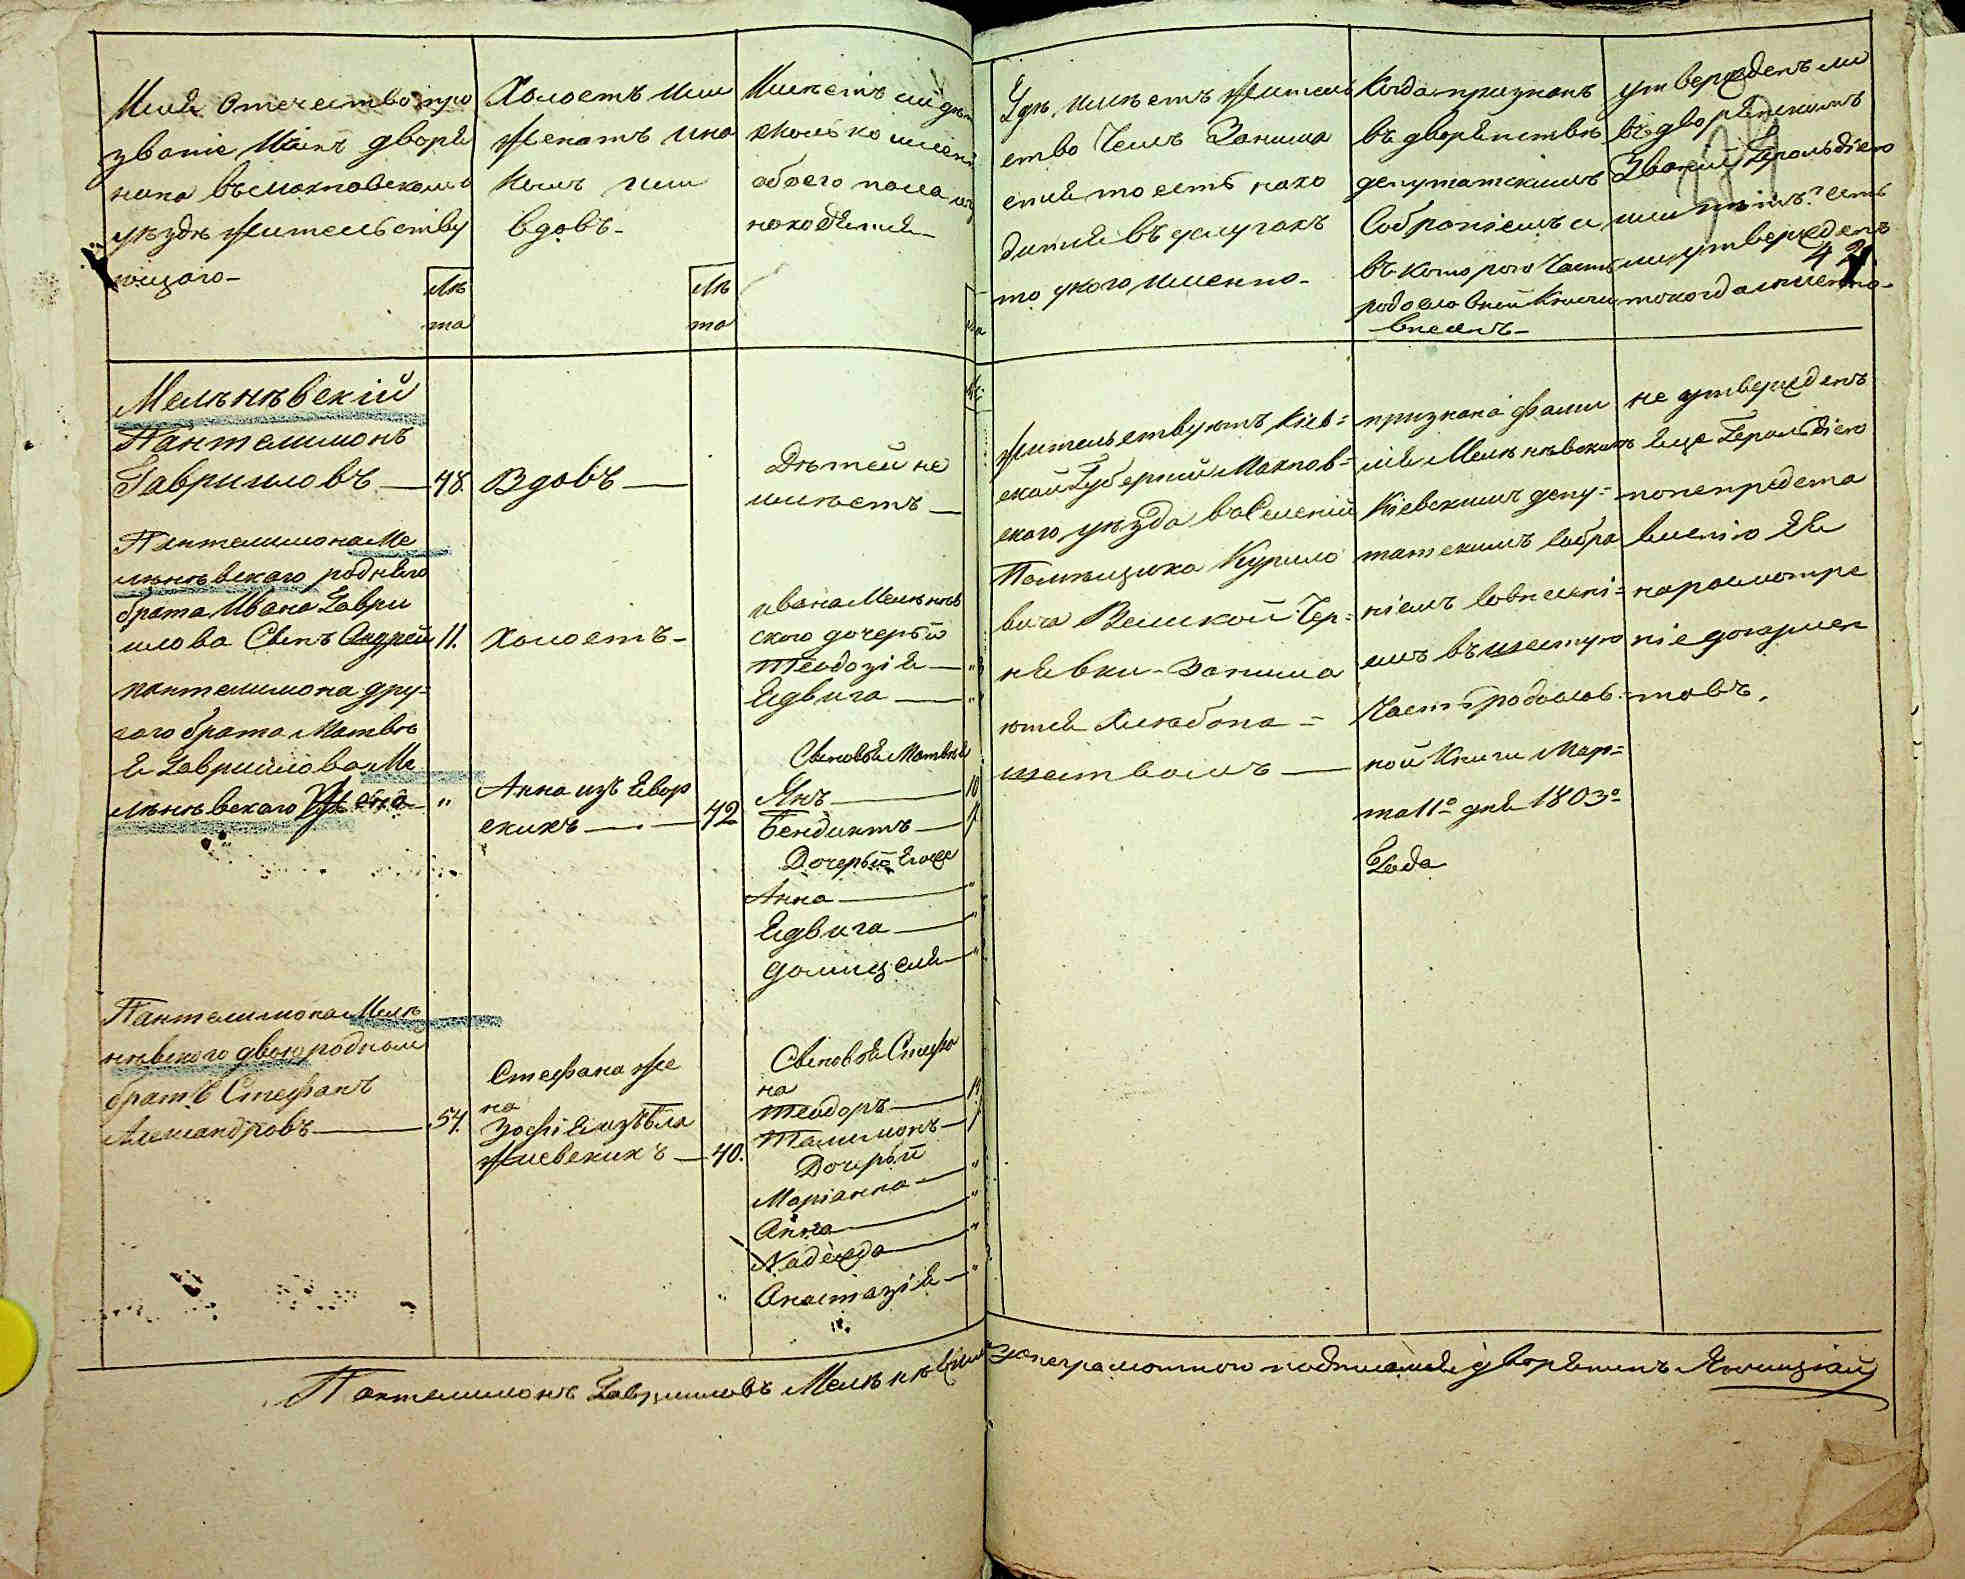 Имя Отечество про
званіе Ичинъ дворя
нина въ Махновскомъ
уѣздѣ жительству
ющаго
Лѣ
та
Холостъ или
женатъ и на
комъ или
вдовъ
Лѣ
та
Имѣетъ ли дѣтей
сколько имени
обоего пола
находятся
Гдѣ имѣетъ жителъ
ство Чемъ Занима
ется то есть нахо
дится въ услугахъ
то укого именно
Когда признанъ
въ дворянствѣ
депутатскимъ
Собраніемъ и
въ которою Часть
родословной Книги
внесенъ
утвержденъ ли
въ дворянскомъ
Званіи Герольдіею
или нѣтъ? есть
ли утвержденъ
то когда именно
42
Мелѣнѣвскій
Пантелимонъ
Гавриловъ 48.
Вдовъ
Дѣтей не
имѣетъ
Пантелимона Ме
лѣнѣвскаго роднаго
брата Ивана Гаври
илова Сынъ Андрей 11.
Холостъ
Ивана Мелѣнѣв
ского дочерьи
Теодозія "
Ядвига "
пантелимона дру=
гаго брата Матвѣ
я Гавриилова Ме
лѣнѣвскаго жена "
Анна изъ Явор
скихъ 42
Сыновья Матвѣя
Янъ 10
Бендиктъ
Дочерьи Егоже
Анна "
Ядвига "
Домицеля "
Пантелимона Мелѣ
нѣвского двоюродной
братъ Стефанъ
Александровъ 54.
Стефана же
на
Зофія изъ Бла
жиевскихъ 40.
Сыновья Стефа
на
Теодоръ
Талимонъ
Дочерьи
Маріанна "
Анна "
Надежда "
Анастазія "
Жительствуютъ Кіев=
ской Губерніи Махнов=
ского уѣзда въ Селеніи
Помѣщика Курило
вича Великой Чер=
нявки Занима
ются Хлѣбопа=
шествомъ
признана фами
лія Мелѣнѣвскихъ
Кіевскимъ депу=
татскимъ Собра
ніемъ Совнесені=
емъ въ шестую
Часть родослов=
ной Книги Мар=
та 11º дня 1803º
Года
не утвержденъ
еще Герольдіею
по непредста
вленію Ея
на разсмотре
ніе докумен
товъ.
Пантелимонъ Гавриловъ Мелѣнѣвскій